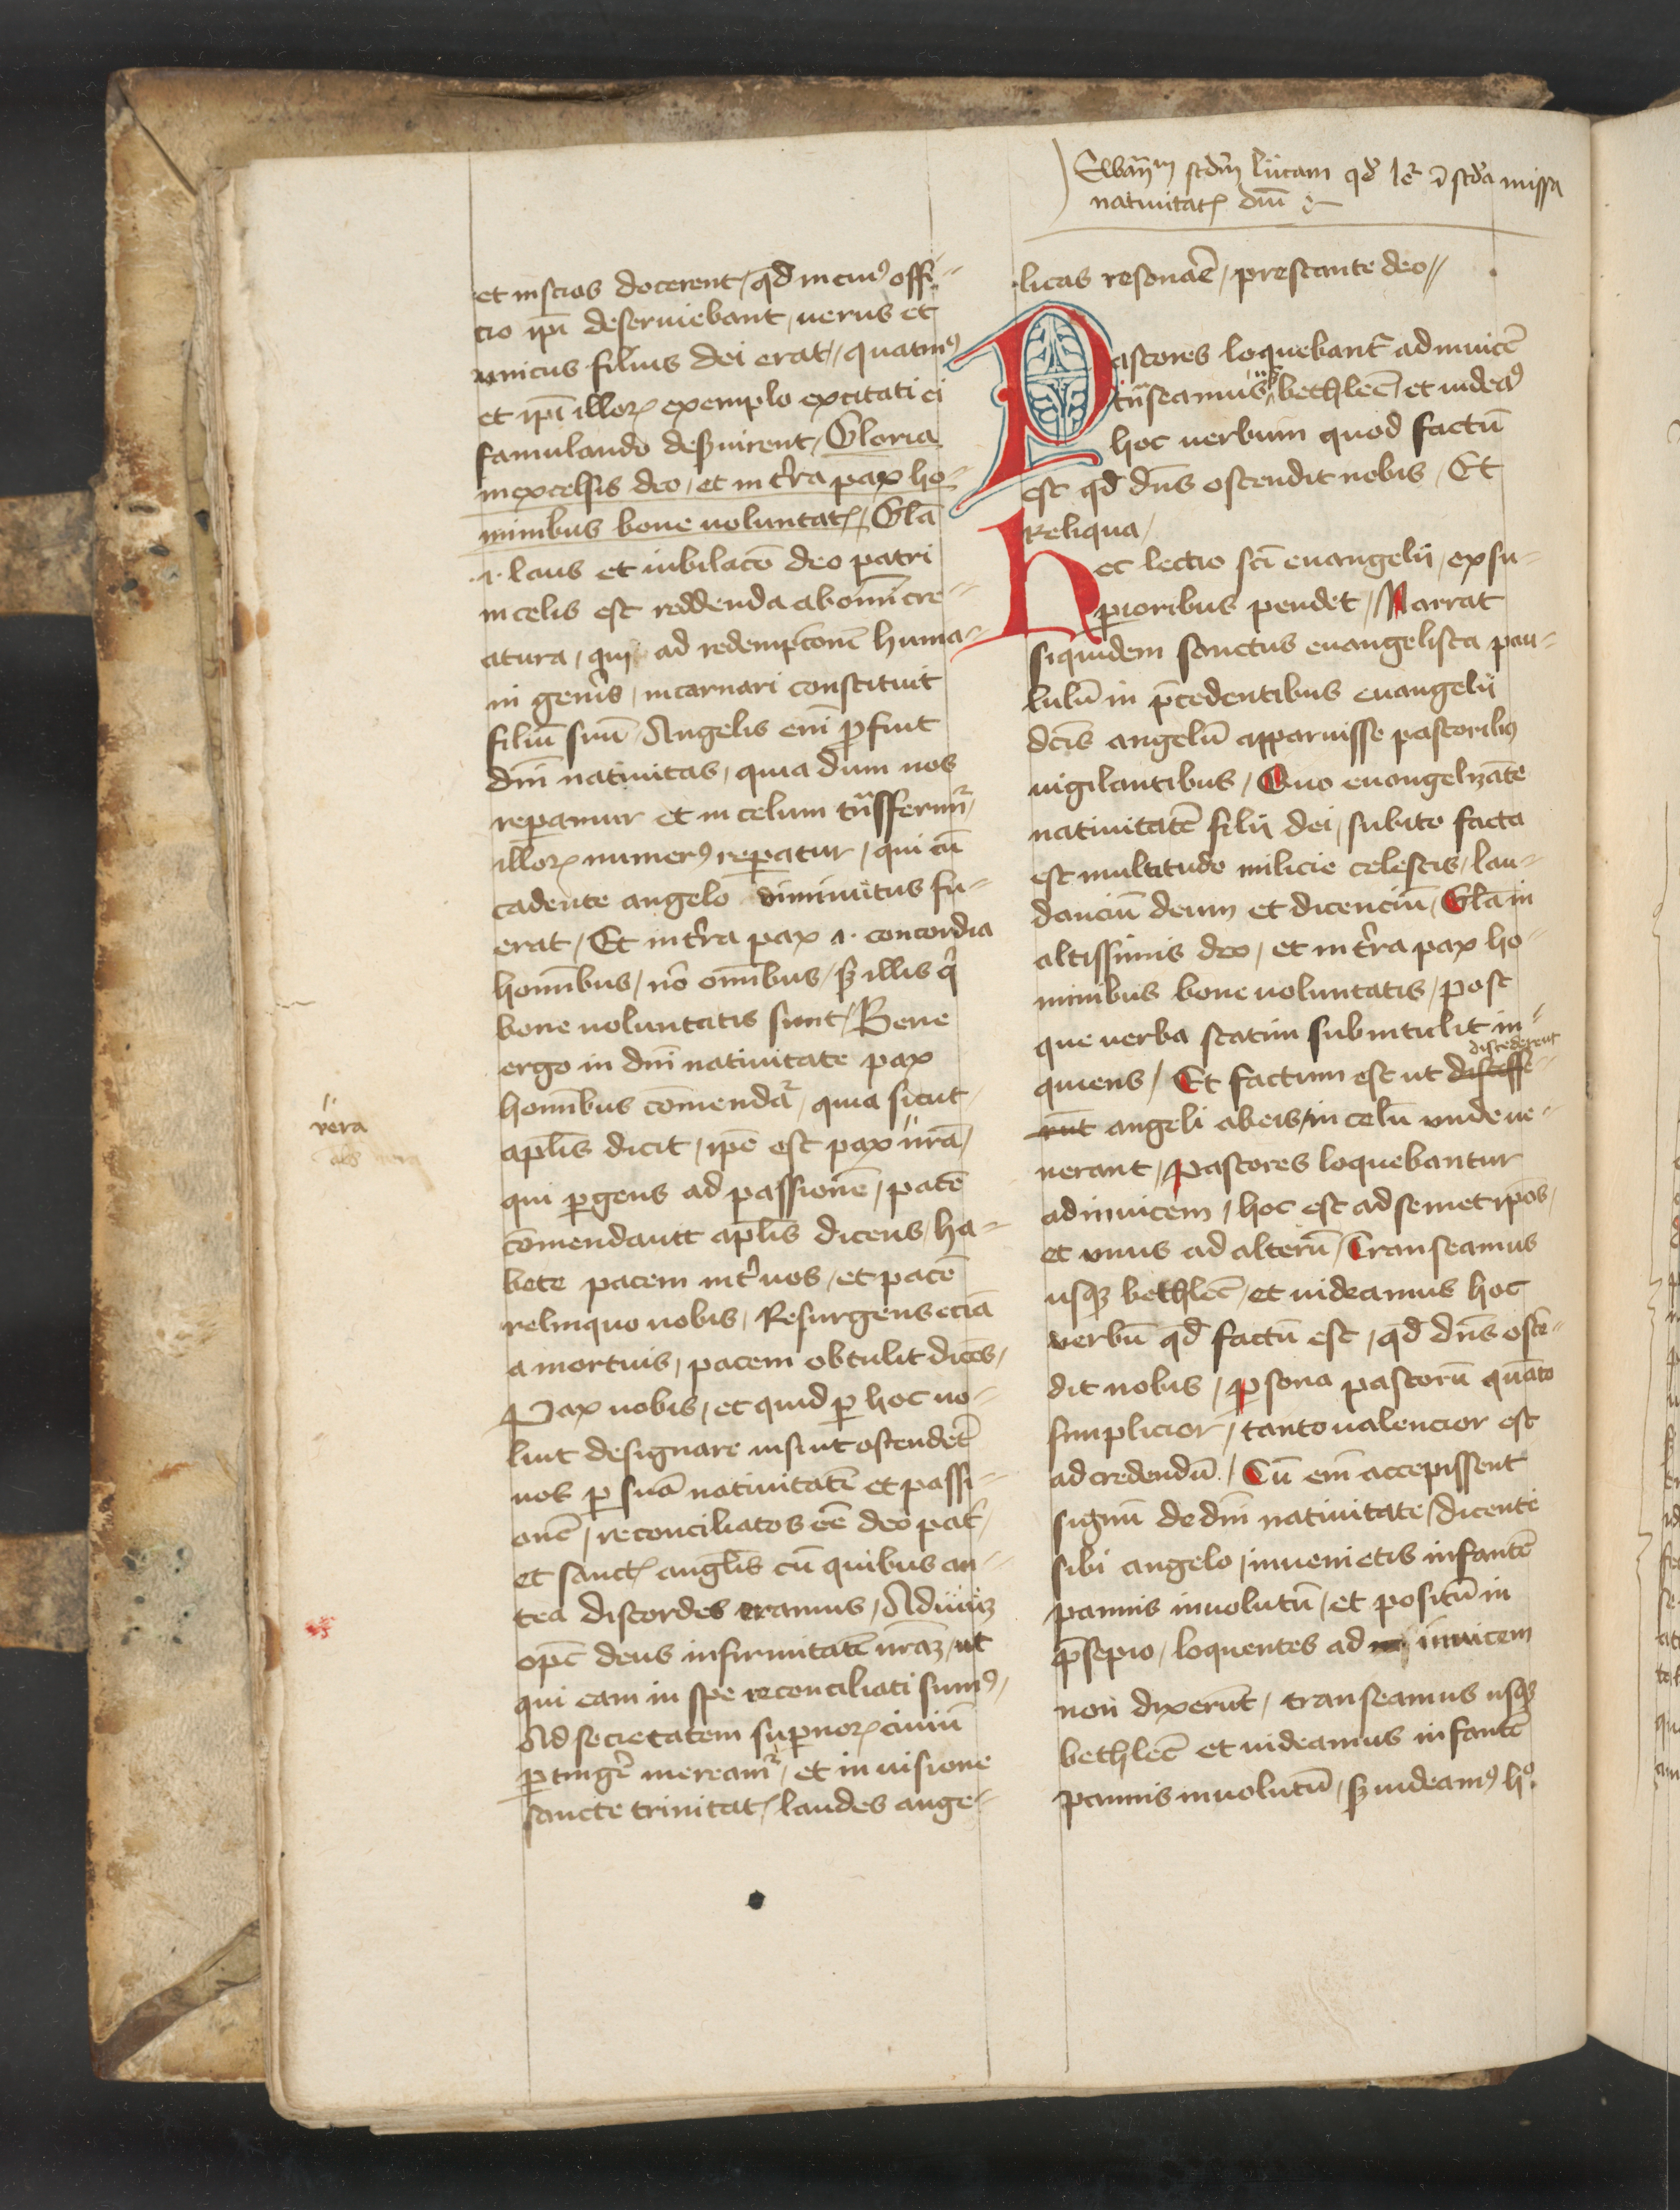 Ewanm scdm lucam qd le i scda missa
natiuitatꝭ dni
et inscios docerent / qd in cuiꝰ offi-
cio ipi deseruiebant, uerus et
vnicus filius dei erat / quatinꝰ
et ipi illoꝝ exemplo excitati ei
famulando deẜuirent / Gloria
in excelsis deo / et in tra pax ho-
minibus bone uoluntatꝭ / Gla
.i. laus et iubilaco deo patri
in celis est reddenda ab omi cre-
atura / qui ad redempconē huma-
ni genis / incarnari constituit
filiū suū Angelis eni ꝓfuit
dni natiuitas / quia dum nos
repamur et in celum tnsferimr /
illoꝝ numerꝰ reꝑatur / qui cū
cadente angelo diminutus fu-
erat / Et in tra pax .i. concordia
homībus / nō omībus / ẜ illis q
bone uoluntatis sunt / Bene
ergo in dni natiuitate pax
homībus cōmendar / quia sicut
apls dicit / ipe est pax nrā /
qui ꝑgens ad passionē / pacē
cōmendauit aplis dicens / ha-
bete pacem int uos / et pacē
relinquo nobis / Resurgens eciā
a mortuis / pacem obtulit dicēs /
Pax uobis / et quid ꝑ hoc uo-
luit designare nisi ut ostenderē
nos ꝑ suā natiuitatē et passi-
onē / reconciliatos eē deo pat /
et sanctꝭ anglis cū quibus an-
tea discordes eramus / Adiuuꝫ
opc deus infirmitatē nrāꝫ / ut
qui eam in spe reconciliati sumꝰ /
Ad secietatem supnoꝝ ciuiū
ꝑtingē mereamr / et in uisione
sancte trinitatꝭ / laudes ange-
vera
licas resonaē / prestante deo //
Pastores loquebantr ad inuicē
tnseamus usqꝫ bethleē / et uideaꝰ
hoc uerbum quod factū
est qd dns ostendit nobis / Et
Reliqua /
Hec lectio sci euangelij / ex su-
pioribus pendet / Narrat
siquidem sanctus euangelista pau-
lulū in pcedentibus euangelij
dcis angelū apparuisse pastoribꝰ
uigilantibus / Quo euangelizāte
natiuitatē filij dei / subito facta
est multitudo milicie celestis / lau-
danciū deum et dicenciū / Glā in
altissimis deo / et in tra pax ho-
minibus bone uoluntatis / post
que uerba statim subintulit in-
quiens / Et factum est ut discesse- discederent
rūt angeli ab eis / in celū vnde ue-
nerant / Pastores loquebantur
ad inuicem / hoc est ad semetipōs /
et vnus ad alterū / Transeamus
usqꝫ bethleē / et uideamus hoc
verbū qd factū est / qd dns ostē-
dit nobis / ꝑsona pastorū quāto
simplicior / tanto ualencior est
ad credendū / Cū eni accepissent
signū de dni natiuitate / dicente
sibi angelo / inuenietis infantē
pannis inuolutū / et positū in
psepio / loquentes ad inuicem
non dixerūt / transeamus usqꝫ
bethleē et uideamus infantē
pannis inuolutū / ẜ uideamꝰ hº